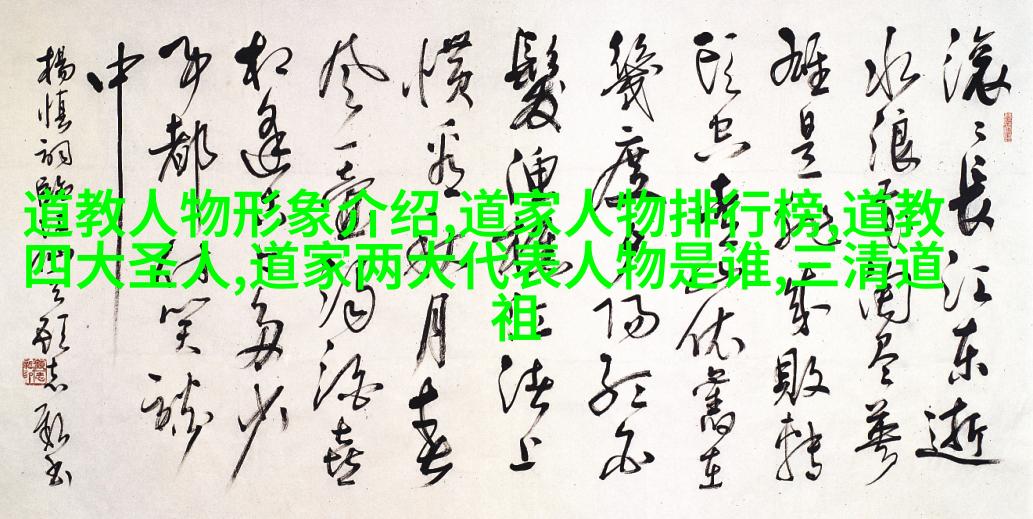 道教人物形象介绍,道家人物排行榜,道教
四大圣人,道家两大代表人物是谁,三清道
祖
滾〻長江东逝
水浪花淘尽英
雄是非成败轉
头空青山依舊在
幾度夕陽红白
髮渔樵江渚上
惯看秋月春
风一壶浊酒喜
相逢古今多少
事都付笑谈
中
楊慎詞臨江仙